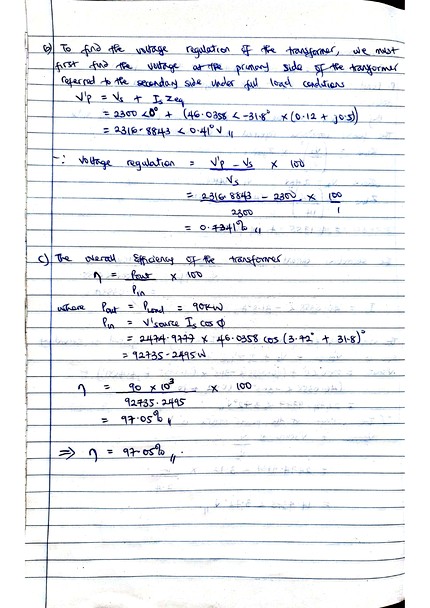 b) To find the voltage regulation of the transformer, we must
first find the voltage at the primary side of the transformer
referred to the secondary side under full load conditions
V'p = Vs + Is Zeq
= 2300 <0° + (46.0358 <-31.8° × (0.12 + j0.5))
= 2316.8843 < 0.41° V //
∴ Voltage regulation = V'p - Vs × 100
Vs
= 2316.8843 - 2300 × 100
2300 1
= 0.7341% //
c) The overall Efficiency of the transformer
η = Pout × 100
Pin
where Pout = Pload = 90KW
Pin = V'source Is cos Φ
= 2474.9777 × 46.0358 cos (3.42° + 31.8)°
= 92735.2495 W
η = 90 × 10³ × 100
92735.2495
= 97.05% //
⇒ η = 97.05% //.